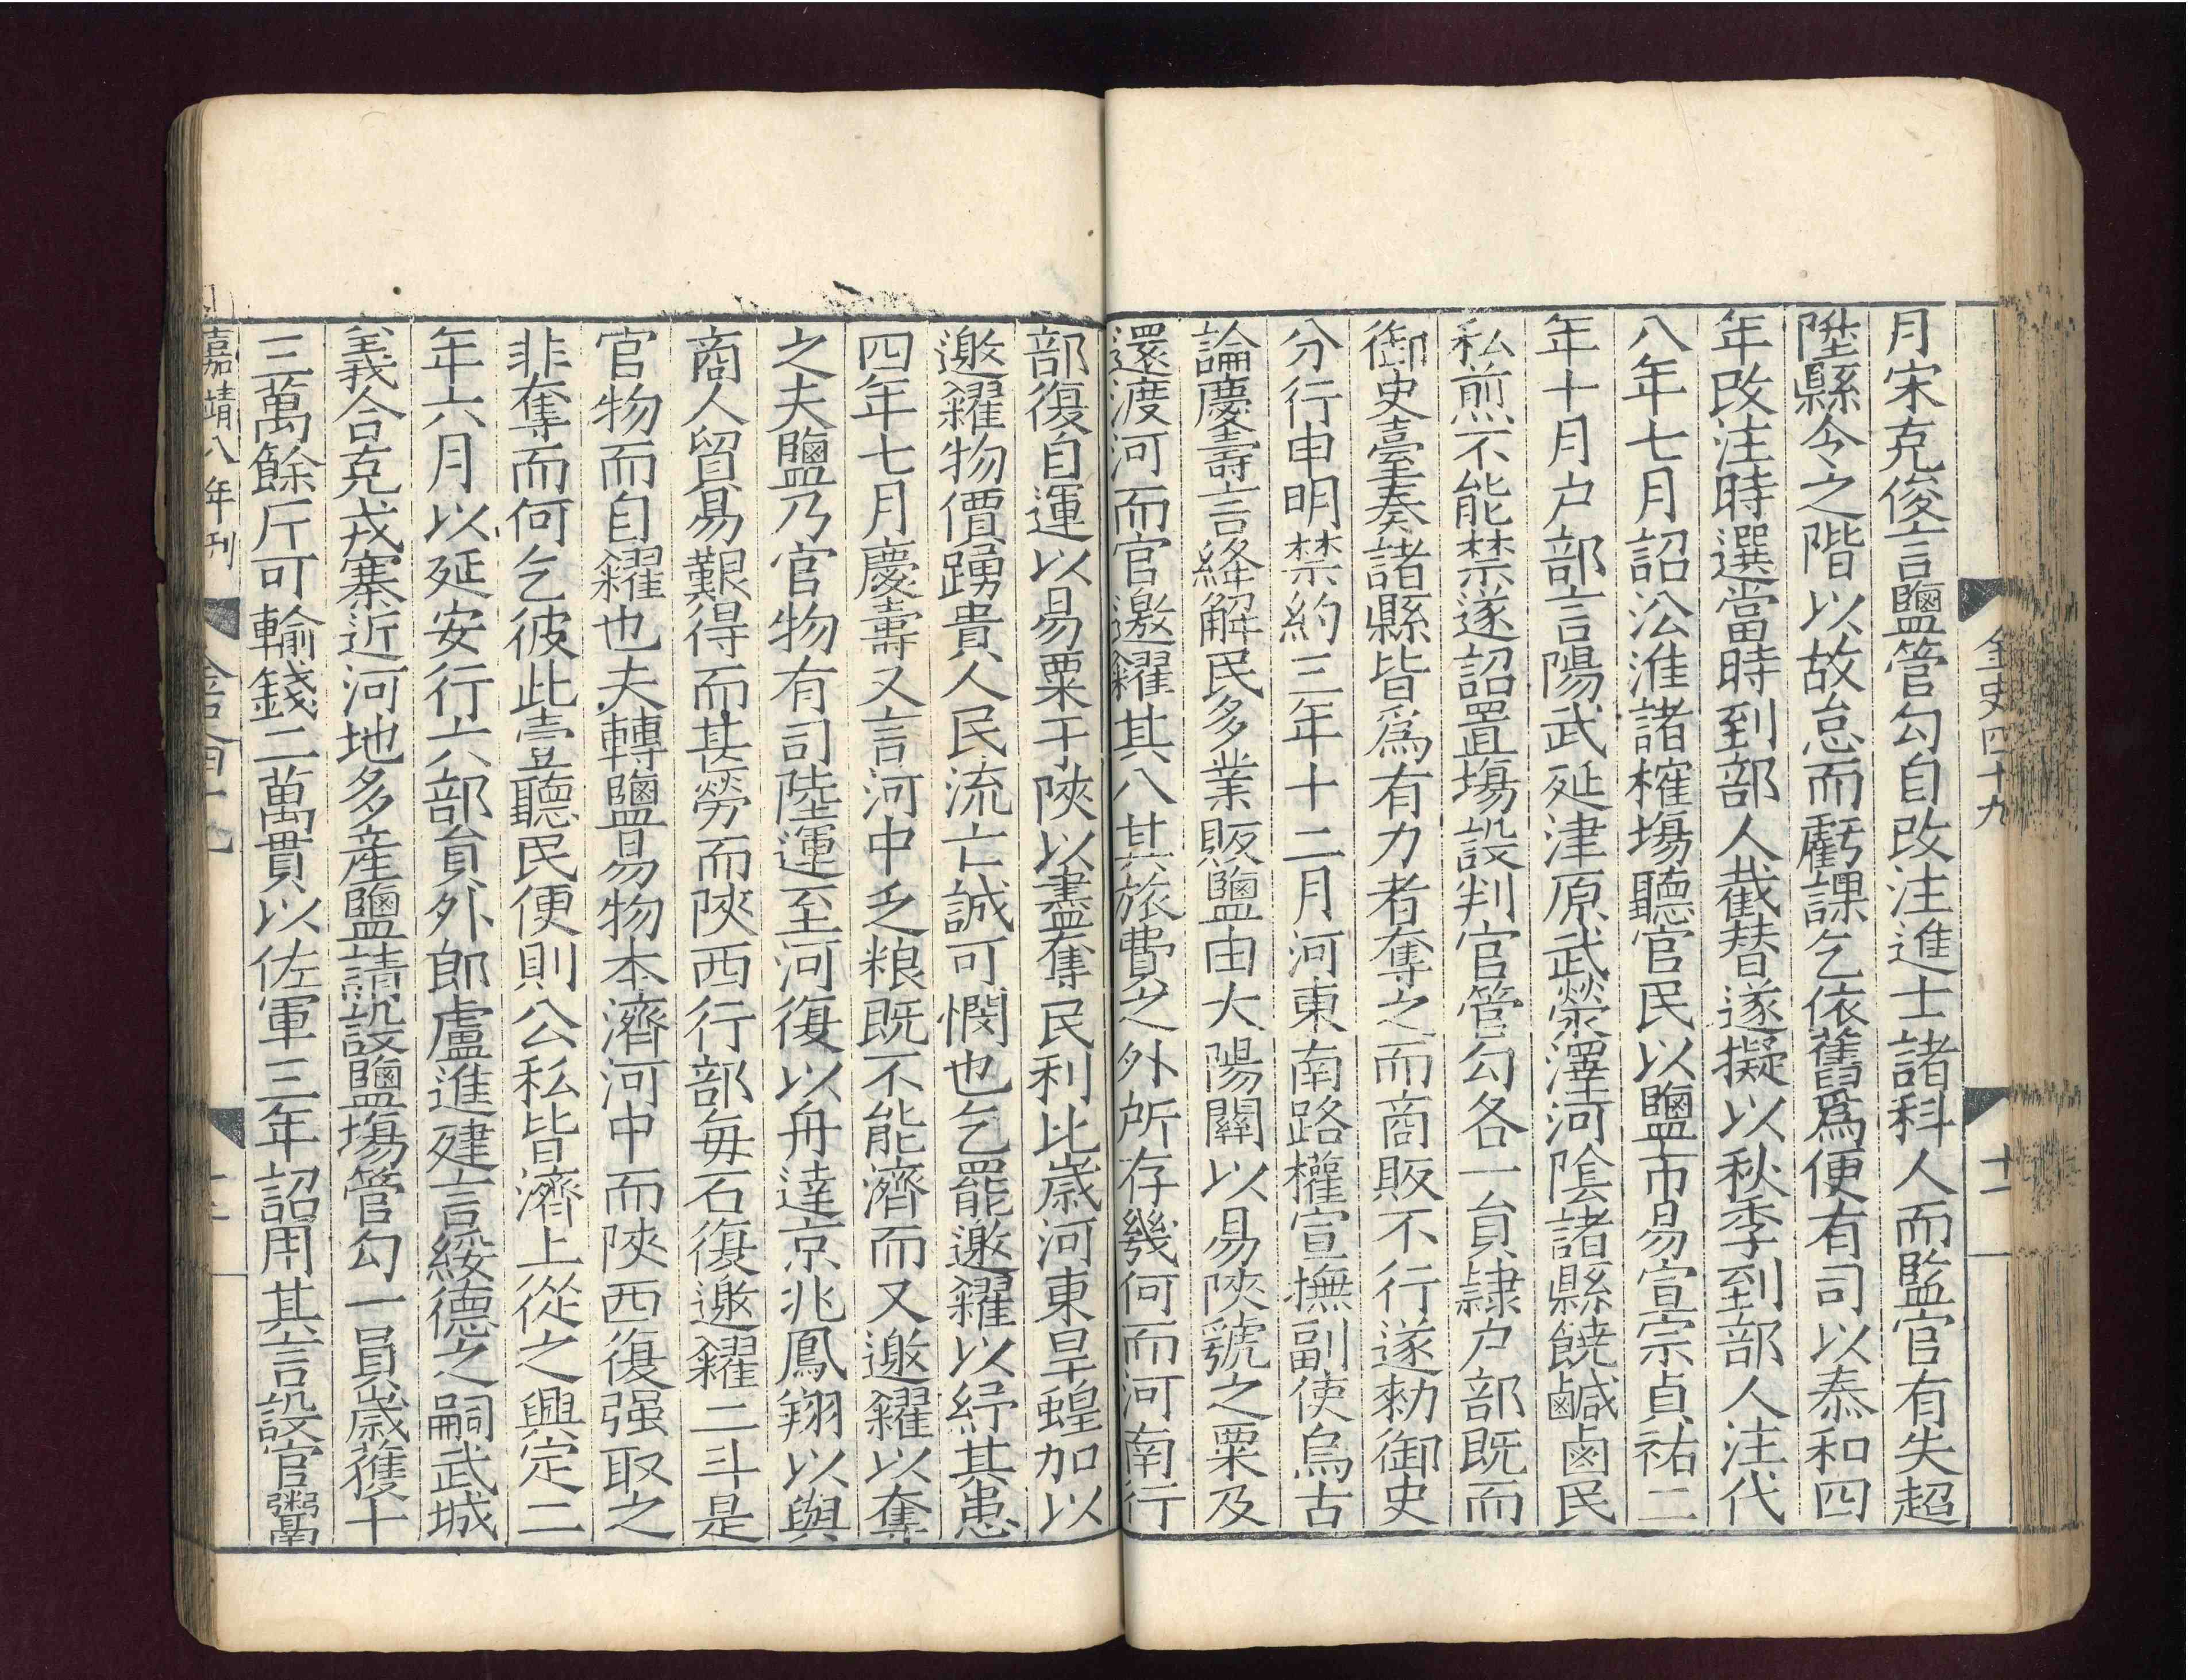 金史四十九
十一
月宋克俊言鹽管勾自改注進士諸科人而監官有失超
陞縣令之階以故怠而虧課乞依舊爲便有司以泰和四
年改注時選當時到部人截替遂擬以秋季到部人注代
八年七月詔㳂淮諸榷場聽官民以鹽市易宣宗貞祐二
年十月户部言陽武延津原武滎澤河陰諸縣饒鹹鹵民
私煎不能禁遂詔置場設判官管勾各一貟隷户部既而
御史臺奏諸縣皆爲有力者奪之而商販不行遂勑御史
分行申明禁約三年十二月河東南路權宣撫副使烏古
論慶壽言絳解民多業販鹽由大陽關以易陝虢之粟及
還渡河而官邀糴其八其旅費之外所存幾何而河南行
部復自運以易粟于陝以盡奪民利比歲河東旱蝗加以
邀糴物價踴貴人民流亡誠可憫也乞罷邀糴以紓其患
四年七月慶壽又言河中乏粮既不能濟而又邀糴以奪
之夫鹽乃官物有司陸運至河復以舟達京兆鳳翔以與
商人貿易艱得而甚勞而陝西行部每石復邀糴二斗是
官物而自糴也夫轉鹽易物本濟河中而陝西復强取之
非奪而何乞彼此壹聽民便則公私皆濟上從之興定二
年六月以延安行六部貟外郎盧進建言綏德之嗣武城
義合克戎寨近河地多產鹽請設鹽場管勾一員歲獲十
三萬餘斤可輸錢二萬貫以佐軍三年詔用其言設官鬻
嘉靖八年刊